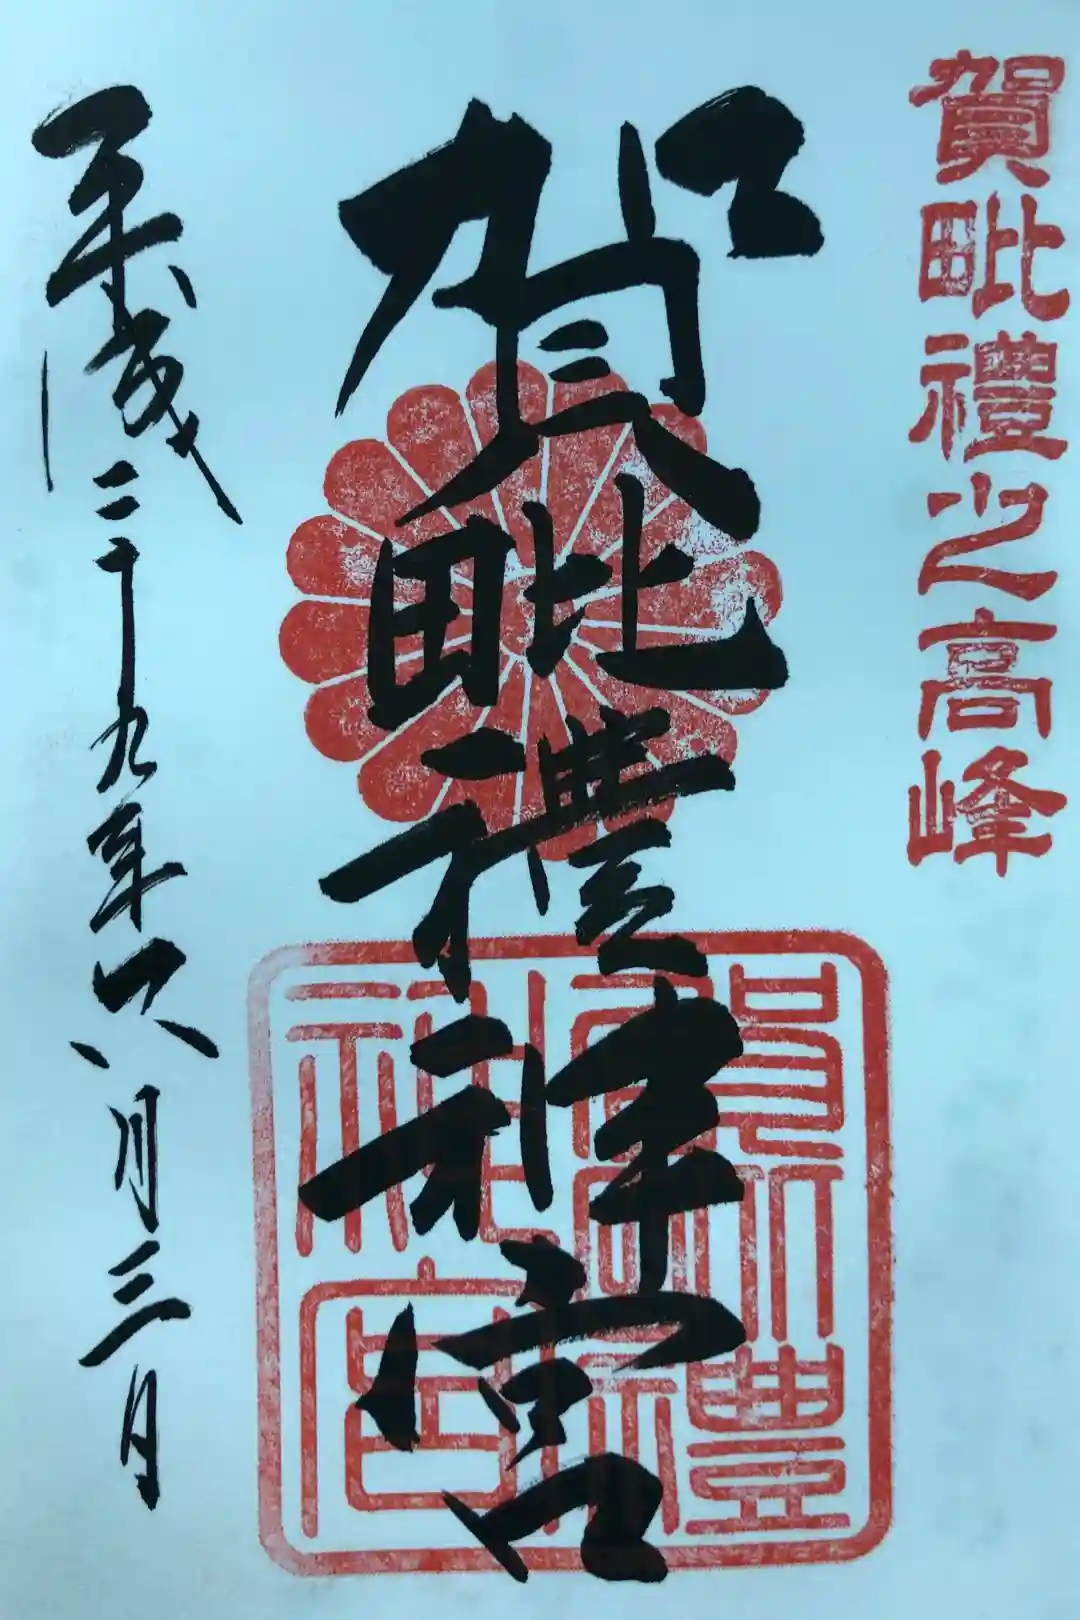 賀毗禮之高峰
賀毗禮神宮
平成二十九年六月三日